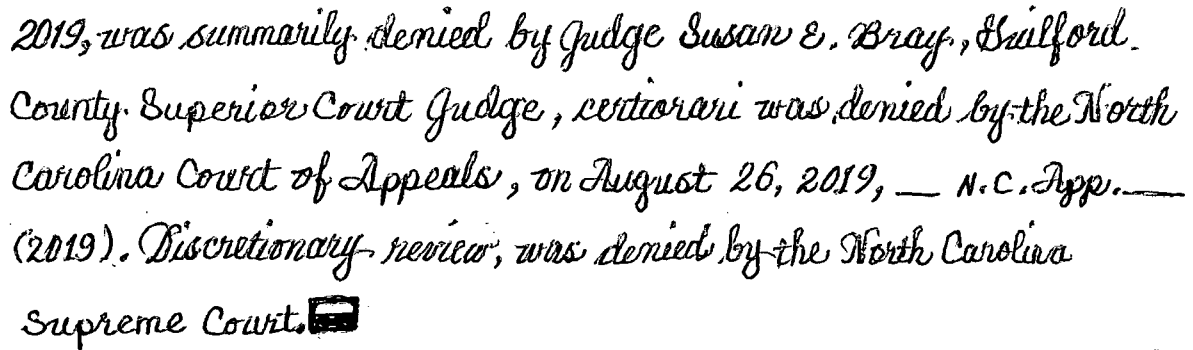 2019, was summarily denied by Judge Susan E. Bray, Guilford
County Superior Court Judge, certiorari was denied by the North
Carolina Court of Appeals, on August 26, 2019, __ N.C. App. __
(2019). Discretionary review, was denied by the North Carolina
Supreme Court.